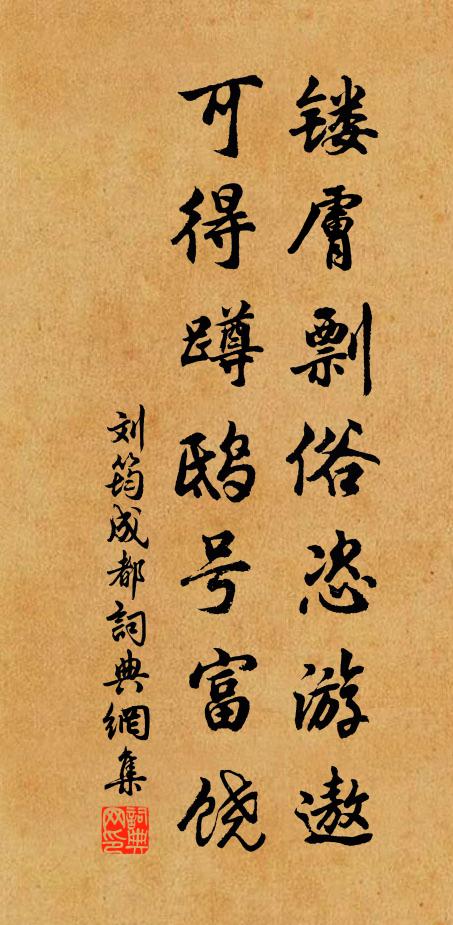 镂膚剽俗恣游遨
可得蹲鸱号富饶
刘筠成都詞典網集
詞典网印